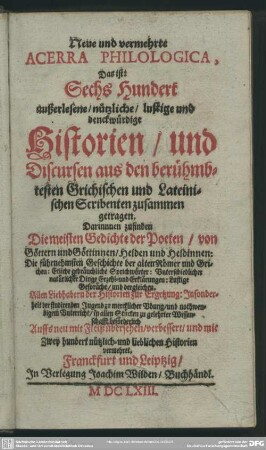 Neue und vermehrte
ACERRA PHILOLOGICA,
Das ist:
Sechs Hundert
außerlesene/ nützliche/ lustige und
denckwürdige
Historien/ und
Discursen aus den berühmb-
testen Grichischen und Lateini-
schen Scribenten zusammen
getragen.
Darinnen zufinden
Die meisten Gedichte der Poeten/ von
Göttern und Göttinnen/ Helden und Heldinnen:
Die führnehmsten Geschichte der alten Römer und Gri-
chen: Etliche gebräuchliche Sprichwörter: Unterschiedlicher
natürlicher Dinge Erklärungen: lustige
Gespräche/ und dergleichen.
Allen Liebhabern der Historien zur Ergetzung: Insonder-
heit der studirenden Jugend zu Ubung/ und nothwen-
digem Unterricht/ in allen Stücken zu gelehrter Wissen-
schafft beförderlich
Auffs neu mit Fleiß übersehen/ verbessert: und mit
Zwey hundert nützlich- und lieblichen Historien
vermehret.
Franckfurt und Leipzig/
In Verlegung Joachim Wilden/ Buchhändl.
M DC LXIII.
DFG